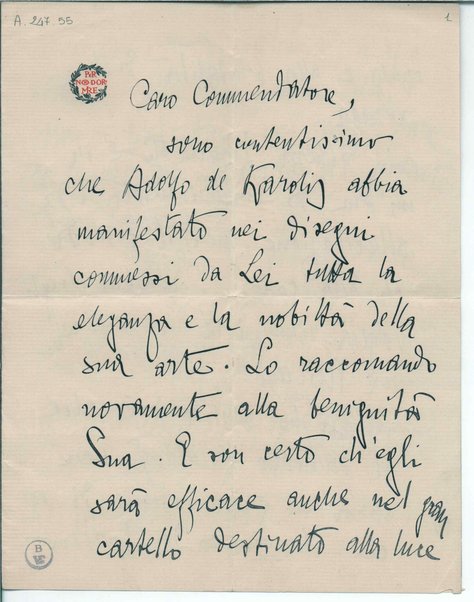 A. 247. 55
1
PER
NON DOR
MIRE
Caro Commendatore,
sono contentissimo
che Adolfo de Karolis abbia
manifestato nei disegni
commessi da Lei tutta la
eleganza e la nobiltà della
sua arte. Lo raccomando
novamente alla benignità
Sua. E son certo ch'egli
sarà efficace anche nel gran
cartello destinato alla luce
B